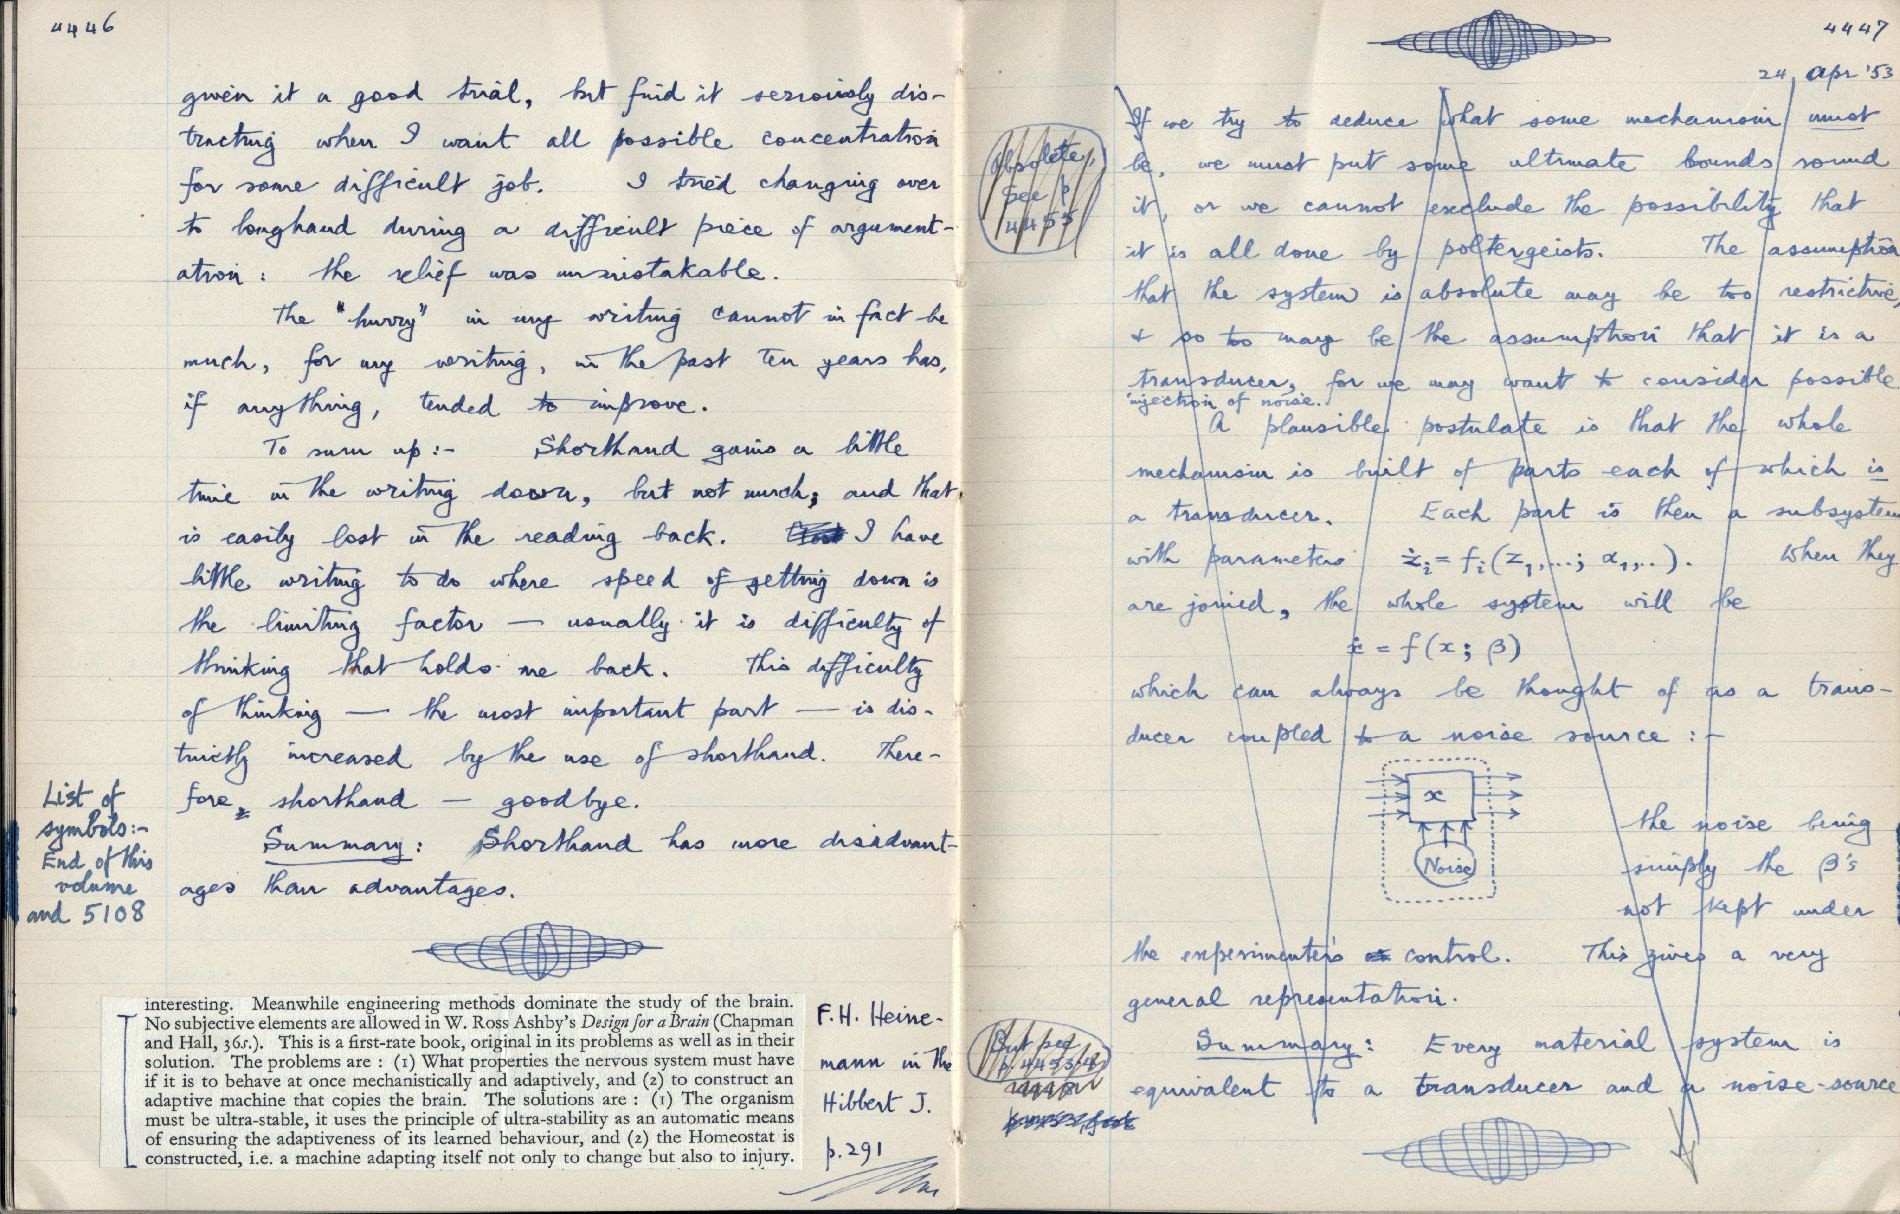 4446
given it a good trial, but find it seriously dis-
tracting when I want all possible concentration
for some difficult job. I tried changing over
to longhand during a difficult piece of argument-
ation: the relief was unmistakable.
The "hurry" in my writing cannot in fact be
much, for my writing, in the past ten years has,
if anything, tended to improve.
To sum up:- Shorthand gains a little
time in the writing down, but not much; and that
is easily lost in the reading back. I have
little writing to do where speed of getting down is
the limiting factor — usually it is difficulty of
thinking that holds me back. This difficulty
of thinking — the most important part — is dis-
tinctly increased by the use of shorthand. There-
fore, shorthand — goodbye.
Summary: Shorthand has more disadvant-
ages than advantages.
List of
symbols:-
End of this
volume
and 5108
interesting. Meanwhile engineering methods dominate the study of the brain.
No subjective elements are allowed in W. Ross Ashby's Design for a Brain (Chapman
and Hall, 36s.). This is a first-rate book, original in its problems as well as in their
solution. The problems are : (1) What properties the nervous system must have
if it is to behave at once mechanistically and adaptively, and (2) to construct an
adaptive machine that copies the brain. The solutions are : (1) The organism
must be ultra-stable, it uses the principle of ultra-stability as an automatic means
of ensuring the adaptiveness of its learned behaviour, and (2) the Homeostat is
constructed, i.e. a machine adapting itself not only to change but also to injury.
F.H. Heine-
mann in the
Hibbert J.
p.291
4447
24 Apr '53
If we try to deduce what some mechanism must
be, we must put some ultimate bounds round
it, or we cannot exclude the possibility that
it is all done by poltergeists. The assumption
that the system is absolute may be too restrictive,
& so too may be the assumption that it is a
transducer, for we may want to consider possible
injection of noise.
A plausible postulate is that the whole
mechanism is built of parts each of which is
a transducer. Each part is then a subsystem
with parameters żᵢ = fᵢ(z₁,...; α₁,..). When they
are joined, the whole system will be
ẋ = f(x; β)
which can always be thought of as a trans-
ducer coupled to a noise source :-
x
Noise
the noise being
simply the β's
not kept under
the experimenter's control. This gives a very
general representation.
Summary: Every material system is
equivalent to a transducer and a noise-source
Obsolete,
See p
4453
But see
p.4453